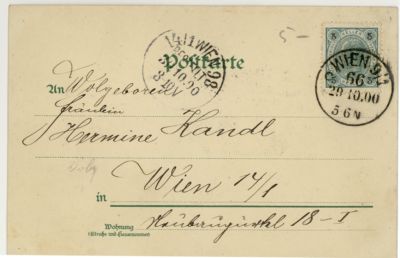 5 —
5 HELLER 5
14/1 WIEN 68
BESTELLT
10.90
WIEN 9/3
66
29.10.90
5 6 N
Postkarte
An Wolgeboren
Fräulein
Hermine Kandl
Wien 14/1
in
Neubaugürtel 18 – I
Wohnung
(Straße und Hausnummer)